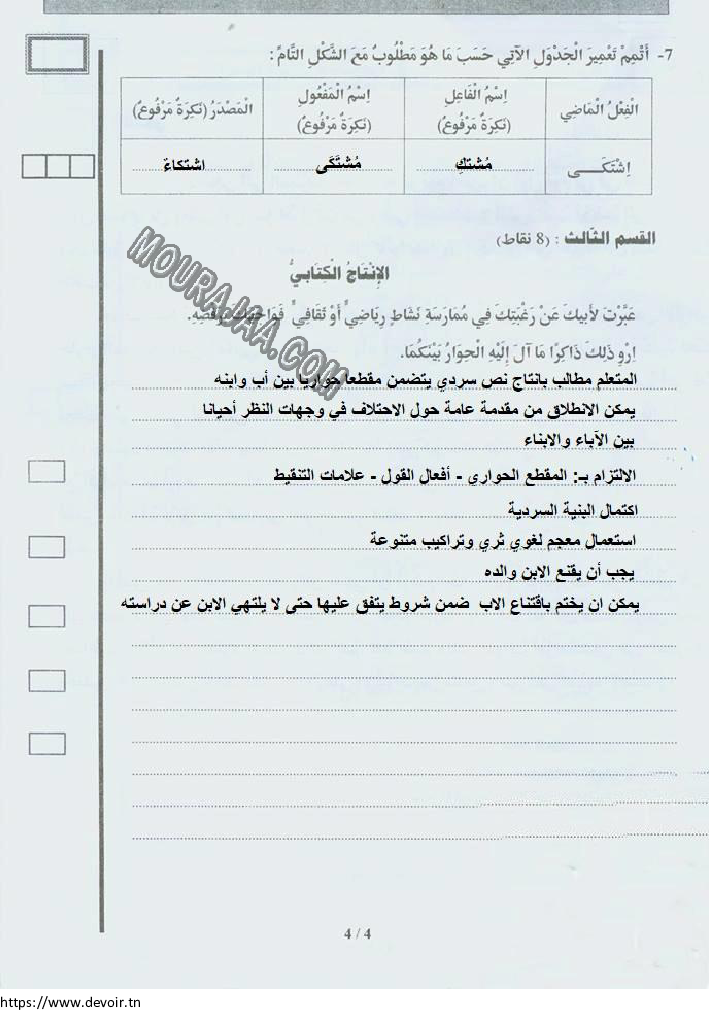 7- أَتْمِمْ تَعْمِيرَ الْجَدْوَلِ الآتِي حَسَبَ مَا هُوَ مَطْلُوبٌ مَعَ الشَّكْلِ التَّامِّ :
الْفِعْلُ الْمَاضِي
اِسْمُ الْفَاعِلِ (نَكِرَةٌ مَرْفُوعٌ)
اِسْمُ الْمَفْعُولِ (نَكِرَةٌ مَرْفُوعٌ)
الْمَصْدَرُ (نَكِرَةٌ مَرْفُوعٌ)
اِشْتَكَـــى
مُشتكٍ
مُشتَكَى
اشتكاءٌ
القسم الثّالث : (8 نقاط)
الإِنْتَاجُ الْكِتَابِيُّ
عَبَّرْتَ لأَبِيكَ عَنْ رَغْبَتِكَ فِي مُمَارَسَةِ نَشَاطٍ رِيَاضِيٍّ أَوْ ثَقَافِيٍّ فَوَاجَهَكَ بِرَفْضِهِ.
اِرْوِ ذَلِكَ ذَاكِرًا مَا آلَ إِلَيْهِ الْحِوَارُ بَيْنَكُمَا.
MOURAJAA.COM
المتعلم مطالب بانتاج نص سردي يتضمن مقطعا حواريا بين أب وابنه
يمكن الانطلاق من مقدمة عامة حول الاحتلاف في وجهات النظر أحيانا
بين الآباء والابناء
الالتزام بـ: المقطع الحواري - أفعال القول - علامات التنقيط
اكتمال البنية السردية
استعمال معجم لغوي ثري وتراكيب متنوعة
يجب أن يقنع الابن والده
يمكن ان يختم باقتناع الاب ضمن شروط يتفق عليها حتى لا يلتهي الابن عن دراسته
4 / 4
https://www.devoir.tn